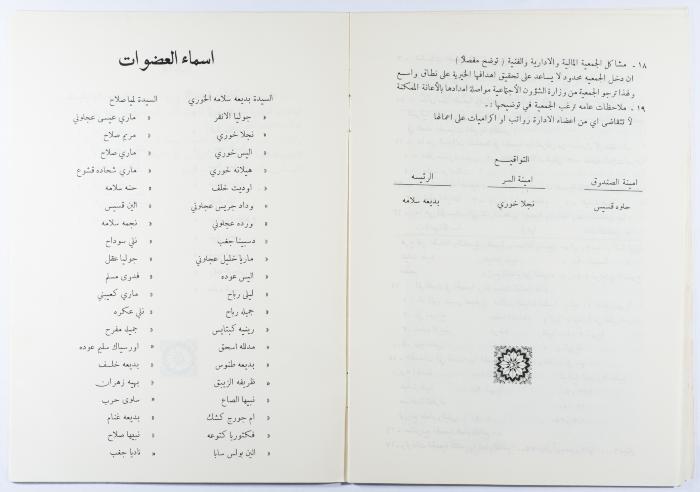 ١٨ - مشاكل الجمعية المالية والادارية والفنية ( توضح مفصلا )
ان دخل الجمعيه محدود لا يساعد على تحقيق اهدافها الخيرية على نطاق واسع
ولهذا ترجو الجمعية من وزارة الشؤون الاجتماعية مواصلة امدادها بالأعانة الممكنة
١٩ - ملاحظات عامه ترغب الجمعية في توضيحها : -
لا تتقاضى اي من اعضاء الادارة رواتب او اكراميات على اعمالها
التواقيع
امينة الصندوق امينة السر الرئيسه
حلوه قسيس نجلا خوري بديعه سلامه
اسماء العضوات
السيدة بديعه سلامه الخوري السيدة لميا صلاح
« جوليا الانقر « ماري عيسى عجلوني
« نجلا خوري « مريم صلاح
« اليس خوري « ماري صلاح
« هيلانه خوري « ماري شحاده قشوع
« اوديت خلف « حنه سلامه
« وداد جريس عجلوني « الين قسيس
« ورده عجلوني « نجمه سلامه
« دسبينا جغب « نلي سوداح
« ماريا خليل عجلوني « جوليا عقل
« اليس عوده « فدوى مسلم
« ليلى رباح « ماري كعيبني
« جميله رباح « نلي عكره
« رينيه كبتايس « جميله مفرح
« مدلله اسحق « اورسياك سليم عوده
« بديعه طنوس « بديعه خلف
« ظريفه الزيبق « بهيه زهران
« نبيها الصاع « سلوى حرب
« ام جورج كشك « بديعه غنام
« فكتوريا كتوعه « نبيها صلاح
« الين بولس سابا « ناديا جغب